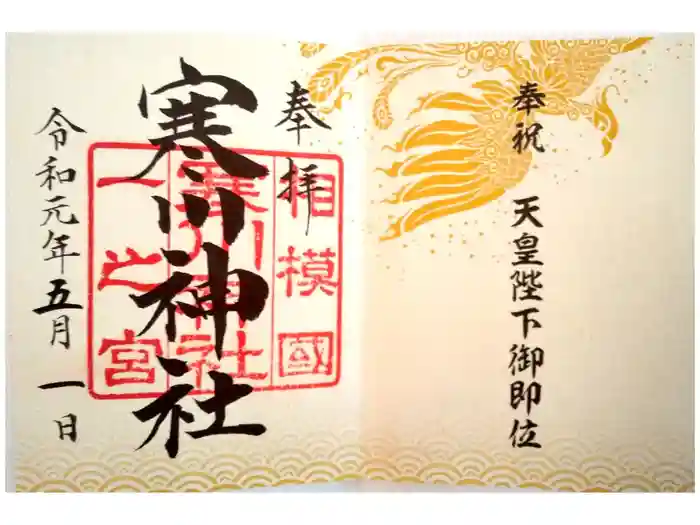 奉祝 天皇陛下御即位
奉拝
寒川神社
相模國
寒川神社
一之宮
令和元年五月一日